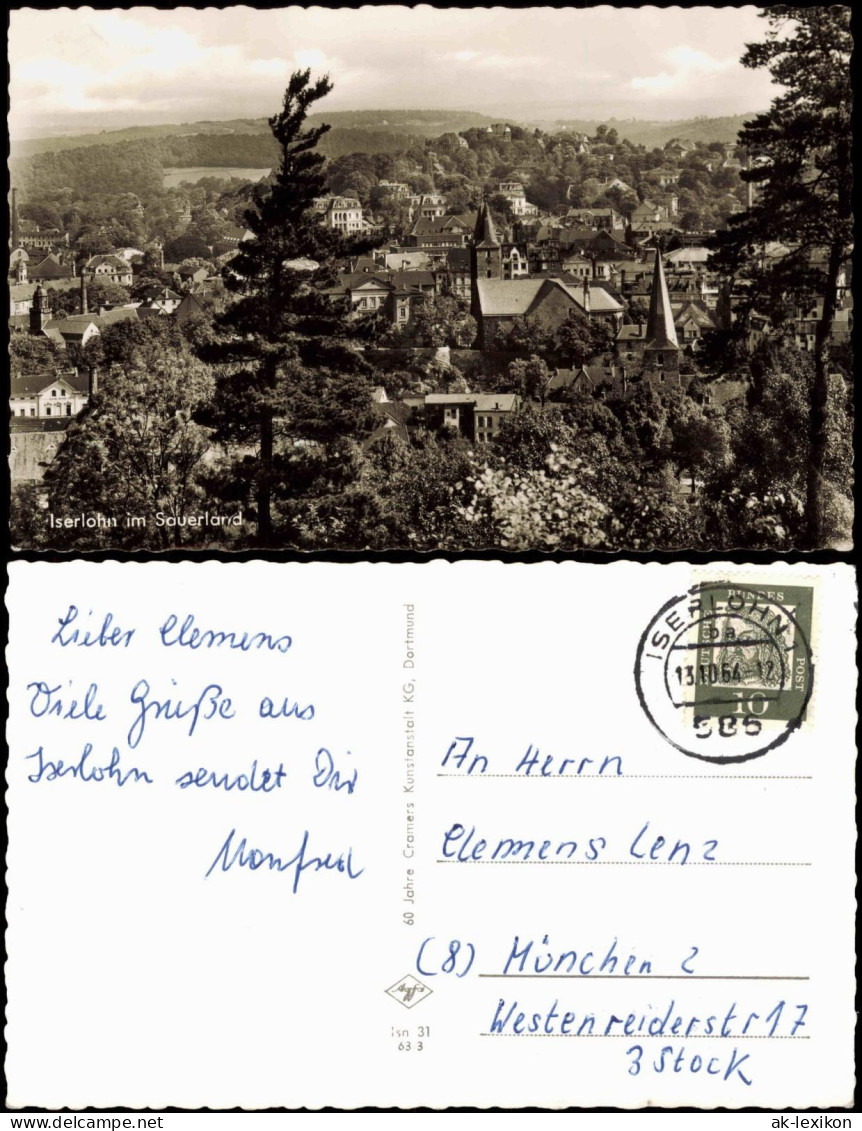 Iserlohn im Sauerland
Lieber Clemens
Viele Grüße aus
Iserlohn sendet Dir
Manfred
60 Jahre Cramers Kunstanstalt KG, Dortmund
Isn 31
63 3
ISERLOHN 1
ba
13.10.64-12
586
BUNDES
POST
10
An Herrn
Clemens Lenz
(8) München 2
Westenreiderstr 17
3 Stock
www.ansichtskarten-lexikon.de
ak-lexikon